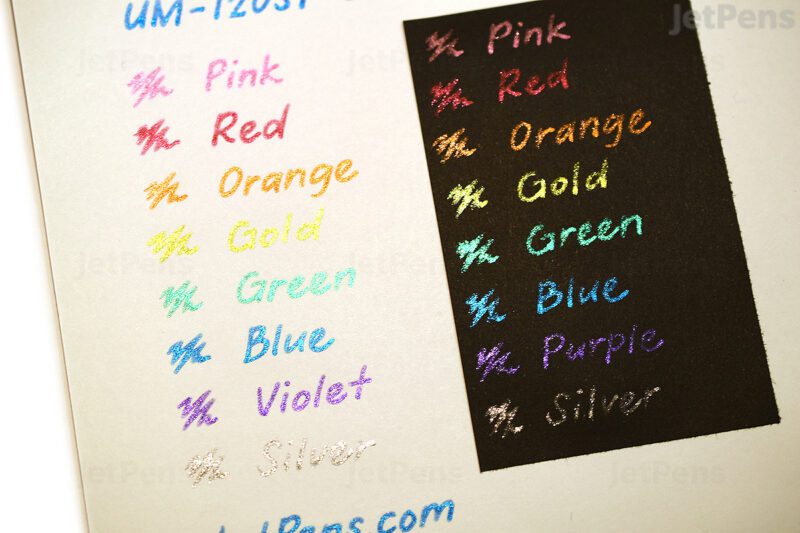 UM-120SP
Pink
Red
Orange
Gold
Green
Blue
Violet
Silver
JetPens.com
Pink
Red
Orange
Gold
Green
Blue
Purple
Silver
JetPens